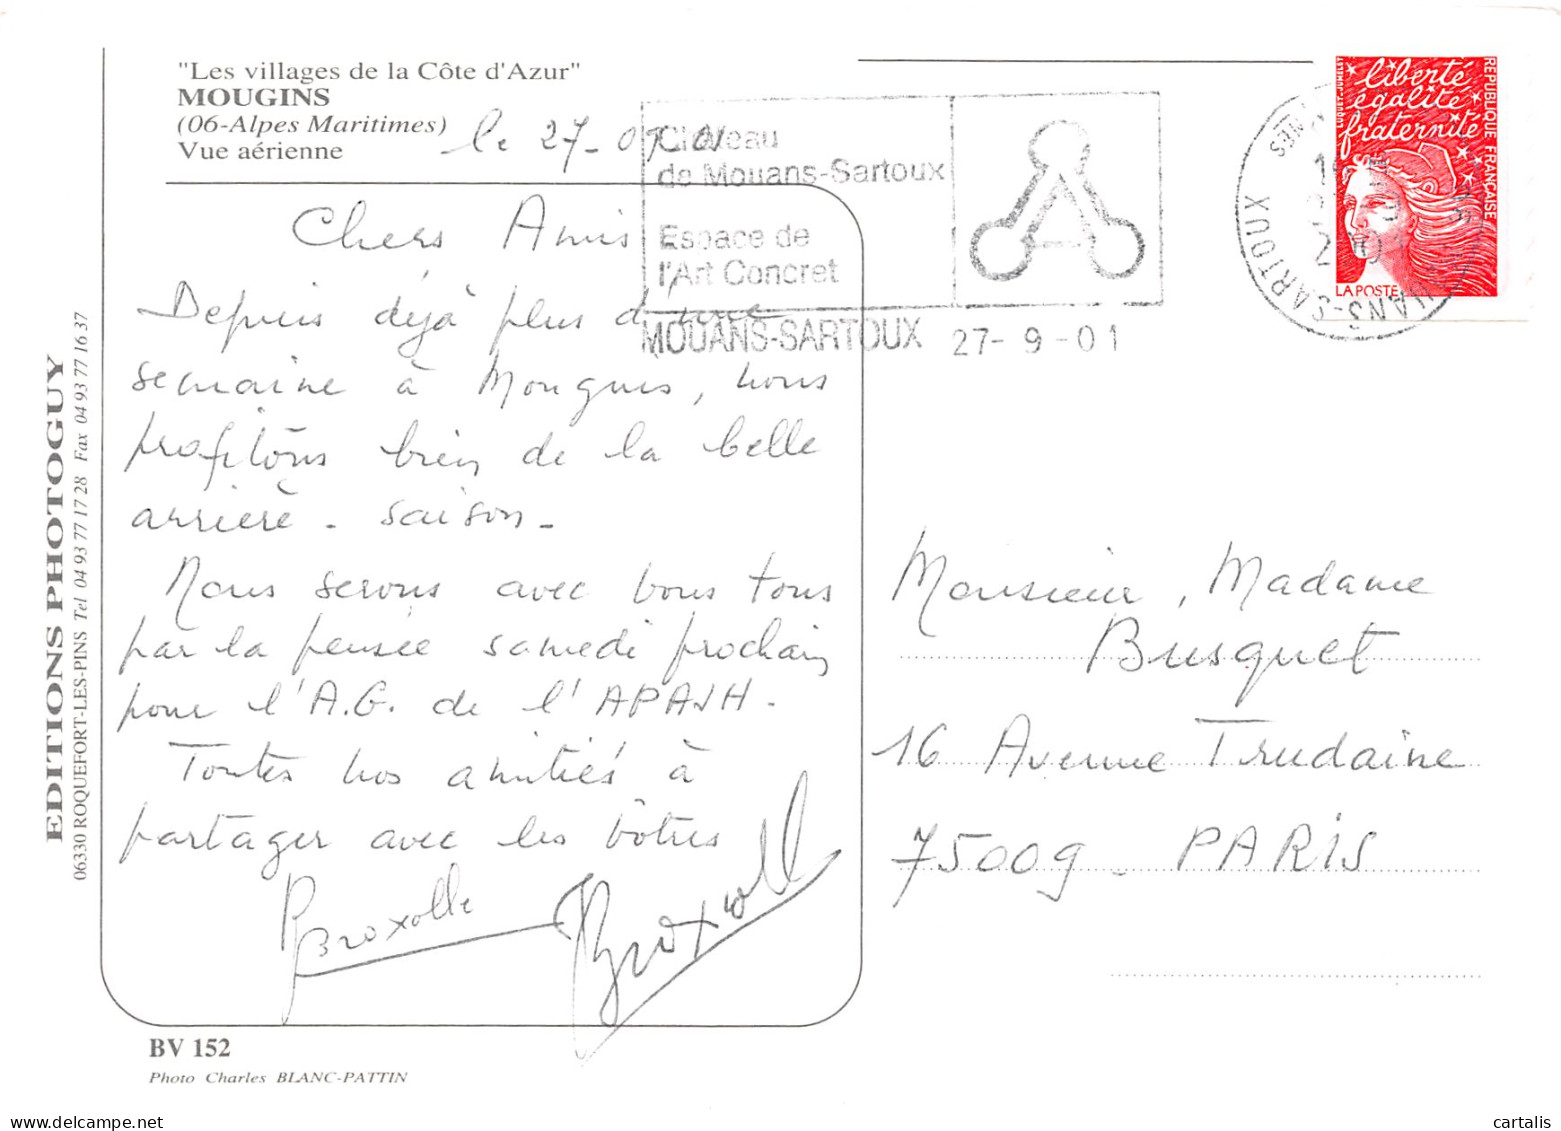 "Les villages de la Côte d'Azur"
MOUGINS
(06-Alpes Maritimes)
Vue aérienne
le 27-09-01
Château
de Mouans-Sartoux
Espace de
l'Art Concret
MOUANS-SARTOUX 27-9-01
liberté
égalité
fraternité
REPUBLIQUE FRANÇAISE
LA POSTE
MOUANS-SARTOUX
Chers Amis
Depuis déjà plus d'une
semaine à Mougins, nous
profitons bien de la belle
arrière-saison-
Nous serons avec vous tous
par la pensée samedi prochain
pour l'A.G. de l'APAJH.
Toutes nos amitiés à
partager avec les vôtres
Broxolle
Broxolle
Monsieur, Madame
Busquet
16 Avenue Trudaine
75009. PARIS
EDITIONS PHOTOGUY
06330 ROQUEFORT-LES-PINS Tel 04 93 77 17 28 Fax 04 93 77 16 37
BV 152
Photo Charles BLANC-PATTIN
cartalis
delcampe.net